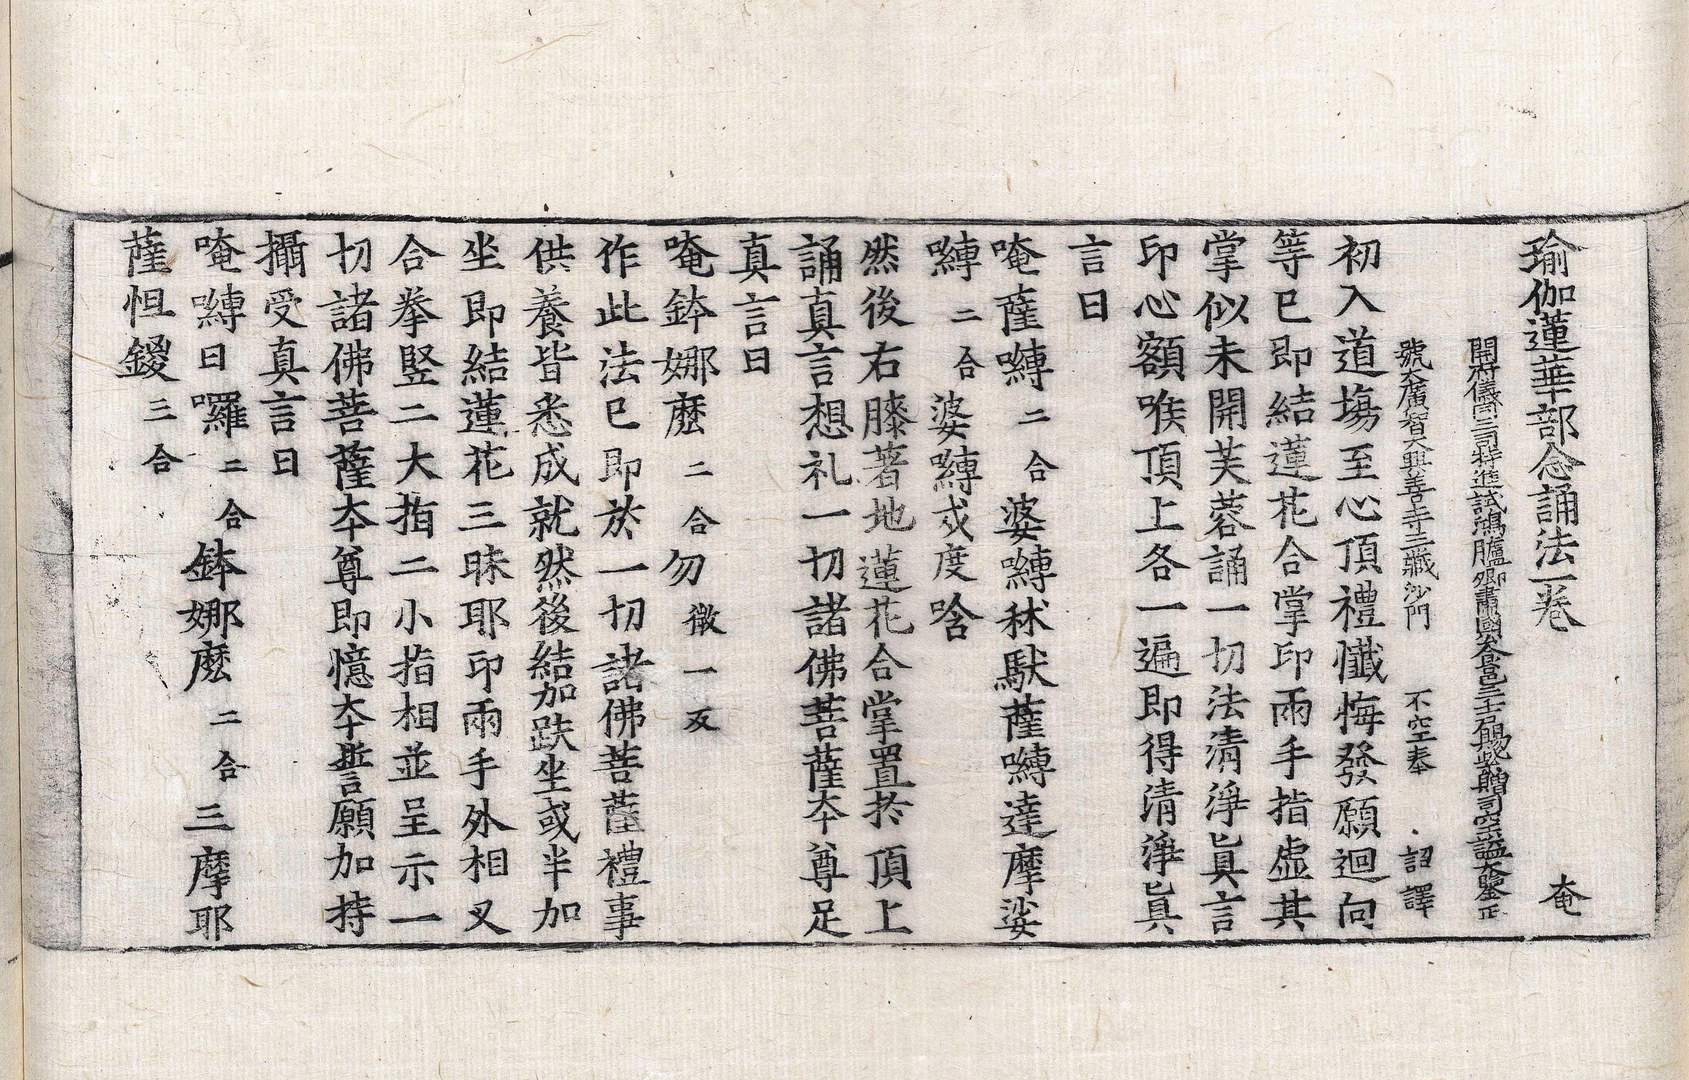 瑜伽蓮華部念誦法一卷 奄
開府儀同三司特進試鴻臚卿肅國公食邑三千戶賜紫贈司空謚大鑒正
號大廣智大興善寺三藏沙門 不空奉 詔譯
初入道場至心頂禮懺悔發願迴向
等已即結蓮花合掌印兩手指虛其
掌似未開芙蓉誦一切法清淨真言
印心額喉頂上各一遍即得清淨真
言曰
唵薩嚩二合婆嚩秫馱薩嚩達摩娑
嚩二合婆嚩戍度唅
然後右膝著地蓮花合掌置於頂上
誦真言想礼一切諸佛菩薩夲尊足
真言曰
唵鉢娜麽二合勿微一反
作此法已即於一切諸佛菩薩禮事
供養皆悉成就然後結加趺坐或半加
坐即結蓮花三昧耶印兩手外相叉
合拳竪二大指二小指相並呈示一
切諸佛菩薩夲尊即憶夲誓願加持
攝受真言曰
唵嚩日囉二合鉢娜麽二合三摩耶
薩怛鑁三合